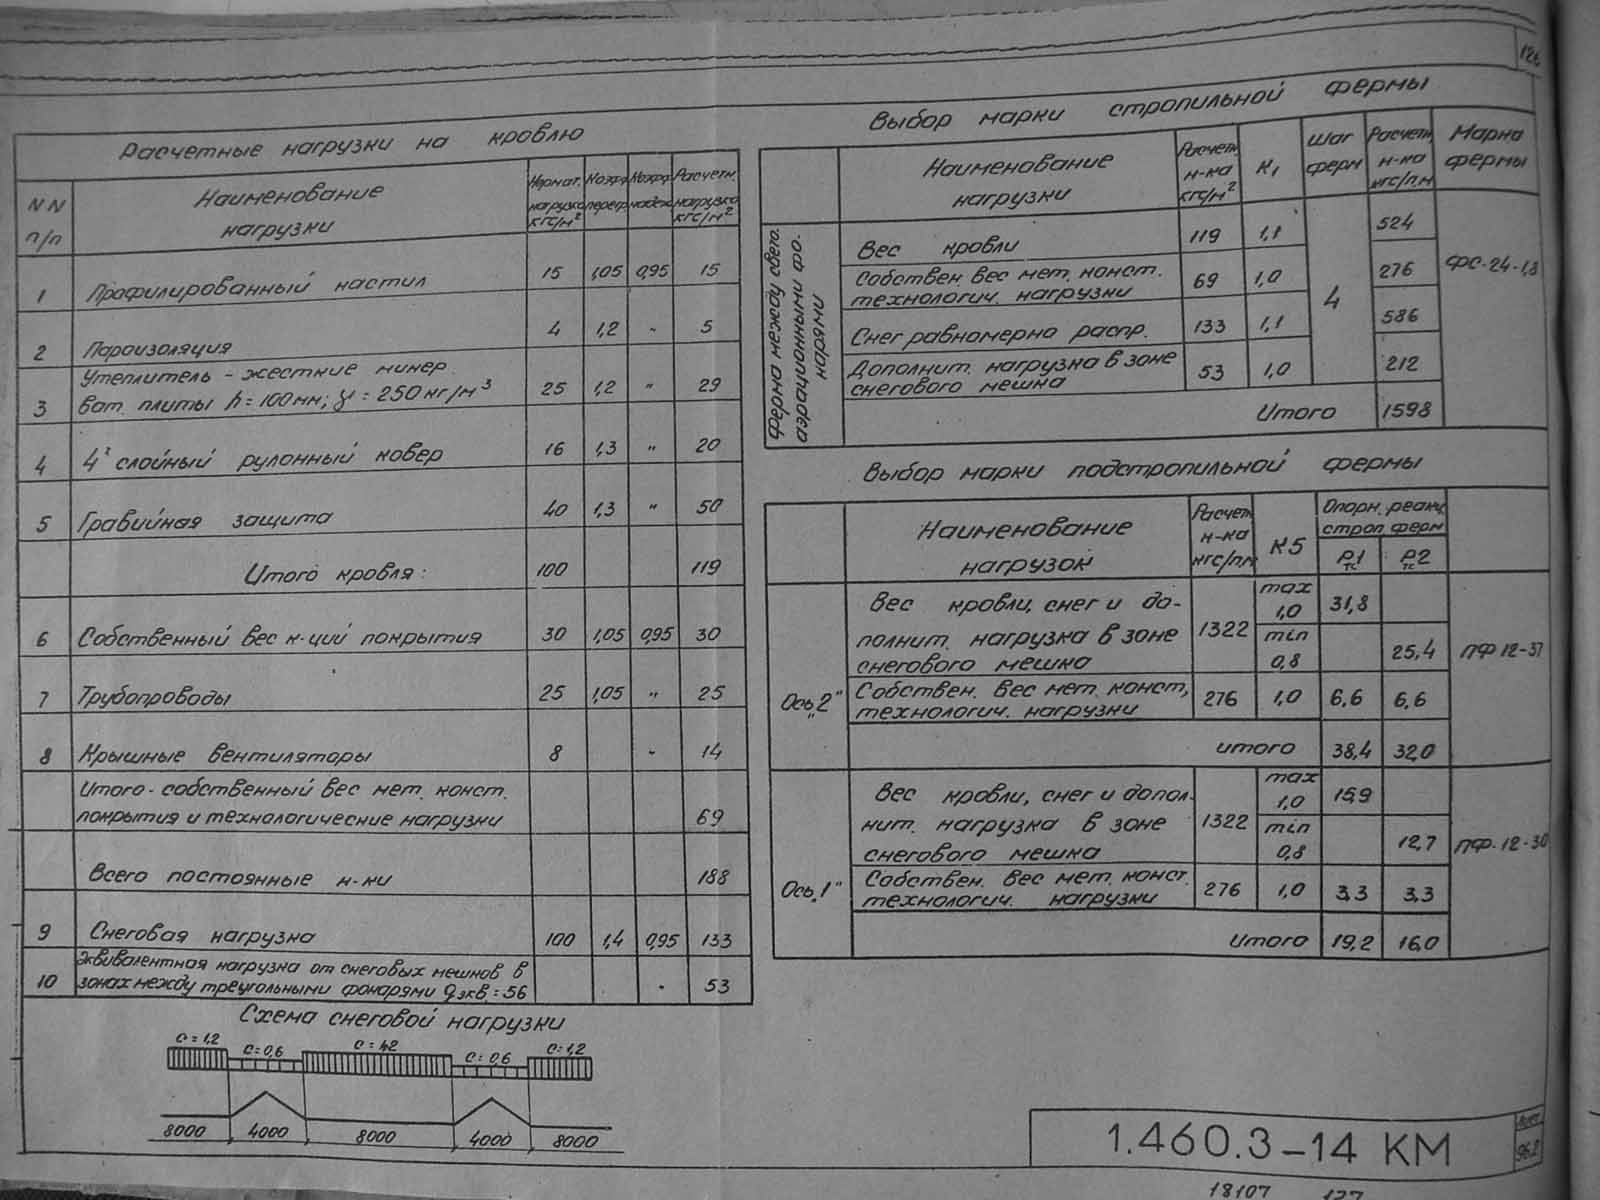 126
Расчетные нагрузки на кровлю
NN п/п
Наименование нагрузки
Нормат. нагрузка кгс/м²
Коэфф. перегр.
Коэфф. надеж.
Расчетн. нагрузка кгс/м²
1 Профилированный настил 15 1,05 0,95 15
2 Пароизоляция 4 1,2 " 5
Утеплитель - жесткие минер.
3 ват. плиты h=100мм; γ=250кг/м³ 25 1,2 " 29
4 4х слойный рулонный ковер 16 1,3 " 20
5 Гравийная защита 40 1,3 " 50
Итого кровля: 100 119
6 Собственный вес к-ций покрытия 30 1,05 0,95 30
7 Трубопроводы 25 1,05 " 25
8 Крышные вентиляторы 8 " 14
Итого-собственный вес мет. конст.
покрытия и технологические нагрузки 69
Всего постоянные н-ки 188
9 Снеговая нагрузка 100 1,4 0,95 133
Эквивалентная нагрузка от снеговых мешков в
10 зонах между треугольными фонарями qэкв.=56 " 53
Схема снеговой нагрузки
C=1,2 C=0,6 C=1,2 C=0,6 C=1,2
8000 4000 8000 4000 8000
Выбор марки стропильной фермы
Наименование нагрузки
Расчетн. н-ка кгс/м²
К1
Шаг ферм
Расчетн. н-ка кгс/п.м
Марка фермы
Ферма между свето-
аэрационными фо-
нарями
Вес кровли 119 1,1 4 524 ФС-24-1,8
Собствен. вес мет. конст.
технологич. нагрузки 69 1,0 276
Снег равномерно распр. 133 1,1 586
Дополнит. нагрузка в зоне
снегового мешка 53 1,0 212
Итого 1598
Выбор марки подстропильной фермы
Наименование нагрузок
Расчет. н-ка кгс/п.м
К5
Опорн. реакц. строп. ферм
Р1 тс
Р2 тс
Ось „2"
Вес кровли, снег и до-
полнит. нагрузка в зоне
снегового мешка 1322
max 1,0 31,8
min 0,8 25,4
ПФ 12-37
Собствен. вес мет. конст,
технологич. нагрузки 276 1,0 6,6 6,6
итого 38,4 32,0
Ось „1"
Вес кровли, снег и допол-
нит. нагрузка в зоне
снегового мешка 1322
max 1,0 15,9
min 0,8 12,7
ПФ-12-30
Собствен. вес мет. конст.
технологич. нагрузки 276 1,0 3,3 3,3
Итого 19,2 16,0
1.460.3-14 КМ
Лист
96.2
18107 127